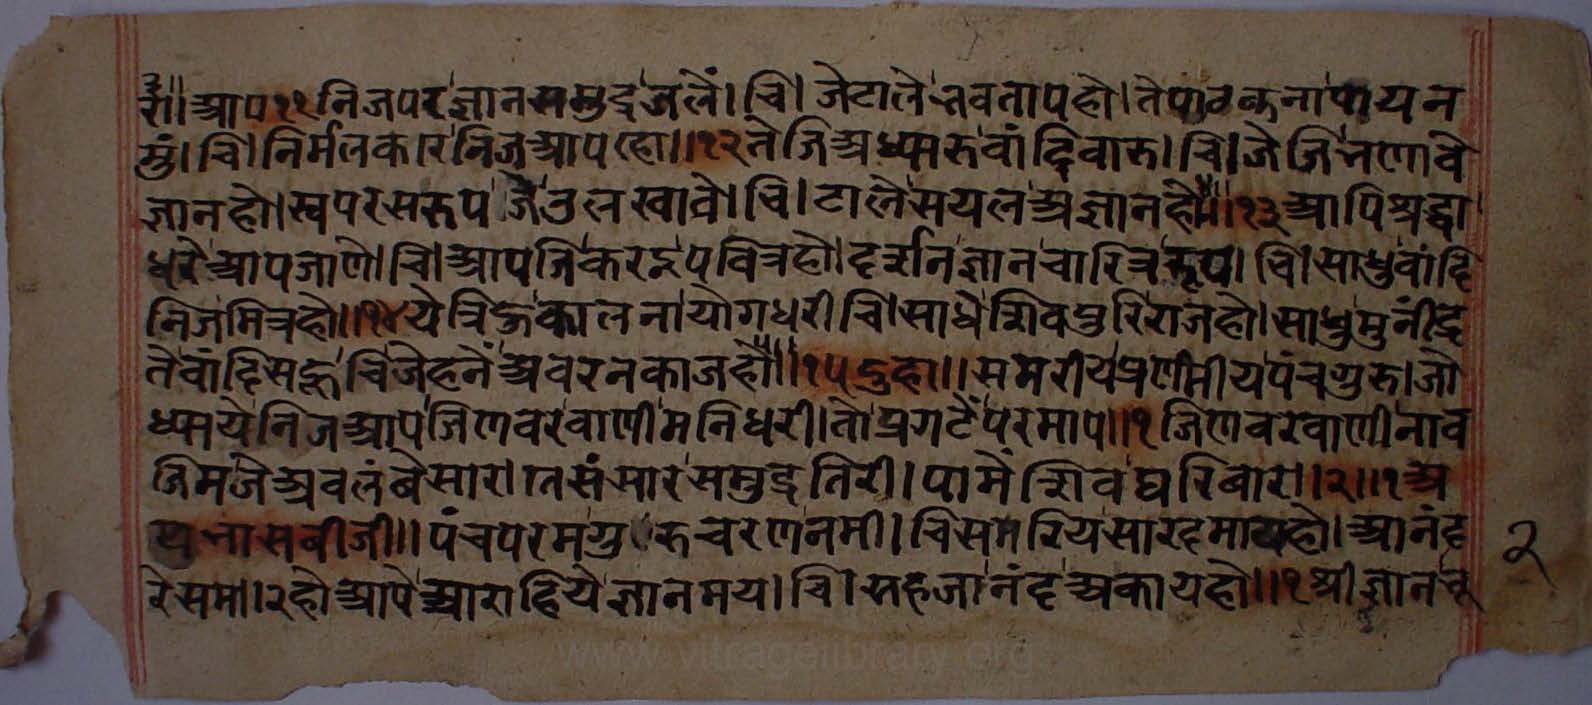 रो॥आप११निजपरज्ञानसमुद्रजलें।चि।जेटालेभवतापहो।तेपाठकनापायन
मुं।चि।निर्मलकारनिजआपहो॥१२तेजिअध्यारुवांदिवारु।चि।जेजिनभणावे
ज्ञानहो।स्वपरसरुपजेतुलखावे।चि।टालेसयलअज्ञानहो॥१३आपिश्रद्धा
धरेआपजाणे।चि।आपजिकरइपवित्रहो।दर्शनज्ञानचारित्ररूप।चि।साधुवांदि
निजमित्रहो॥१४येत्रिहूकालनायोगधरीचि।साधेशिवपुरिराजहो।साधुमुनींद्र
तेवांदिसहूचिजेहनेंअवरनकाजहो॥१५दुहा॥समरीयेप्रणीमीयपंचगुरु।जो
ध्यायेनिजआपजिणवरवाणीमनिधरी।तोप्रगटेंपरमाप॥१जिणवरवाणीनाव
जिमजेअवलंबेसार।तसंसारसमुद्रतिरी।पामेंशिवघरिबार॥२॥१अ
थभासबीजी॥पंचपरमगुरुचरणनमी।चिसमरियसारदमायहो।आनंद
रेसमा।२होआपेआराहियेज्ञानमय।चि।सहजानंदअकायहो॥१श्रीज्ञानभू
२
www.vitragelibrary.org